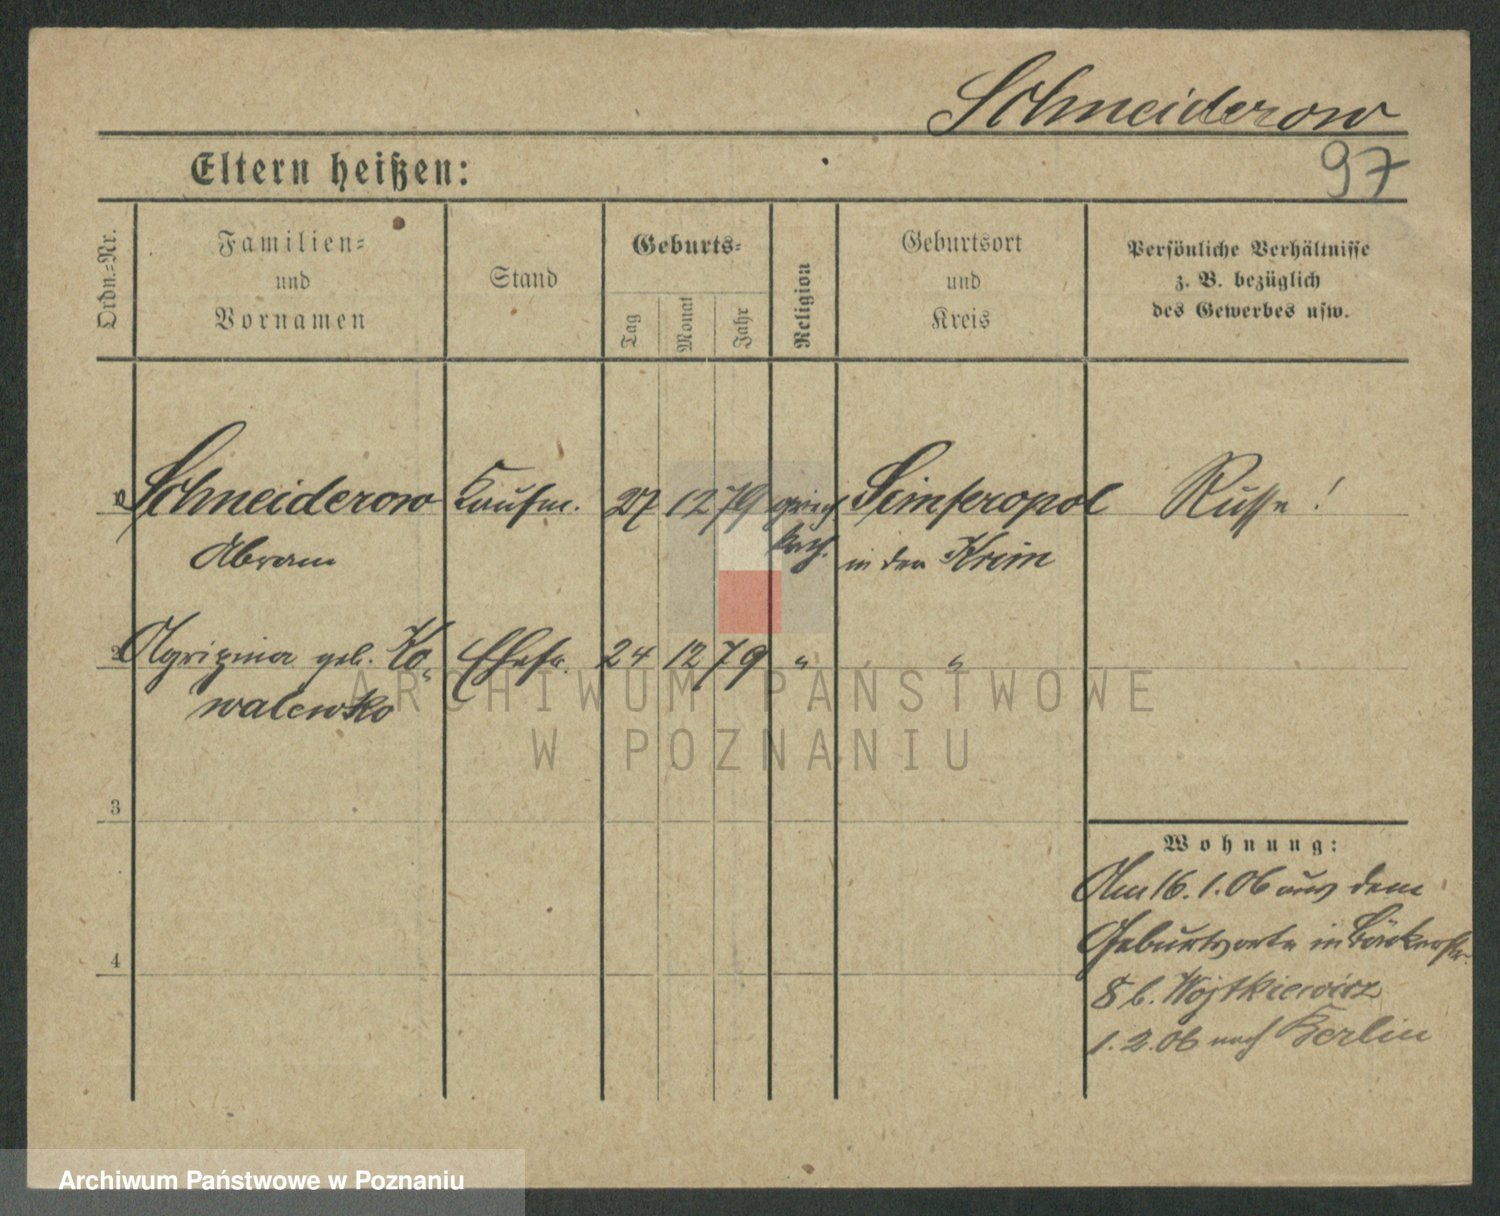 Schneiderow
97
Eltern heißen:
Ordn.-Nr.
Familien-
und
Vornamen
Stand
Geburts-
Tag
Monat
Jahr
Religion
Geburtsort
und
Kreis
Persönliche Verhältnisse
z. B. bezüglich
des Gewerbes usw.
1 Schneiderow Kaufm. 27 12 79 griech Simferopol Russe!
Abram kath. in der Krim
2 Agripina geb. Ko„ Ehefr. 24 12 79 " "
walewko
ARCHIWUM PAŃSTWOWE
W POZNANIU
3
4
Wohnung:
Am 16.1.06 aus dem
Geburtsorte in Bäckerstr.
8 b. Wojtkiewicz
1.2.06 nach Berlin
Archiwum Państwowe w Poznaniu